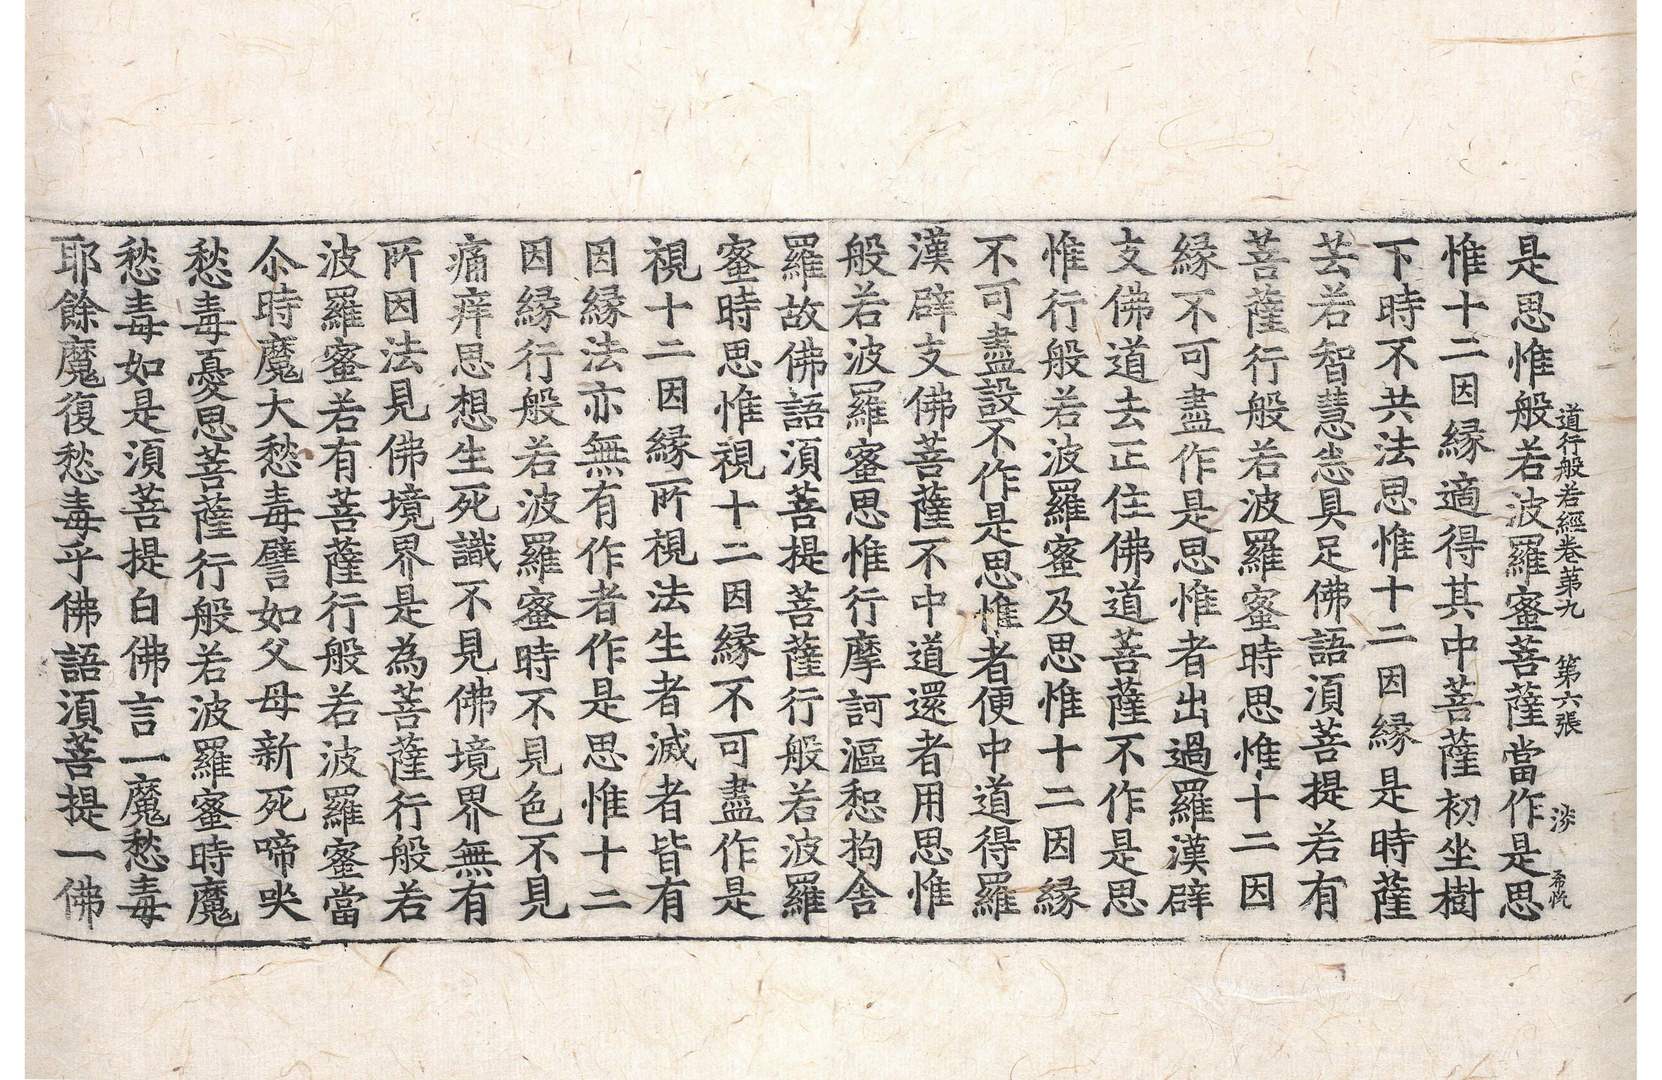 道行般若經卷第九 第六張 淡
是思惟般若波羅蜜菩薩當作是思
惟十二因縁適得其中菩薩初坐樹
下時不共法思惟十二因縁是時薩
芸若智慧悉具足佛語湏菩提若有
菩薩行般若波羅蜜時思惟十二因
縁不可盡作是思惟者出過羅漢辟
支佛道去正住佛道菩薩不作是思
惟行般若波羅蜜及思惟十二因縁
不可盡設不作是思惟者便中道得羅
漢辟支佛菩薩不中道還者用思惟
般若波羅蜜思惟行摩訶漚惒拘舍
羅故佛語湏菩提菩薩行般若波羅
蜜時思惟視十二因縁不可盡作是
視十二因縁所視法生者滅者皆有
因縁法亦無有作者作是思惟十二
因縁行般若波羅蜜時不見色不見
痛痒思想生死識不見佛境界無有
所因法見佛境界是為菩薩行般若
波羅蜜若有菩薩行般若波羅蜜當
尒時魔大愁毒譬如父母新死啼哭
愁毒憂思菩薩行般若波羅蜜時魔
愁毒如是湏菩提白佛言一魔愁毒
耶餘魔復愁毒乎佛語湏菩提一佛